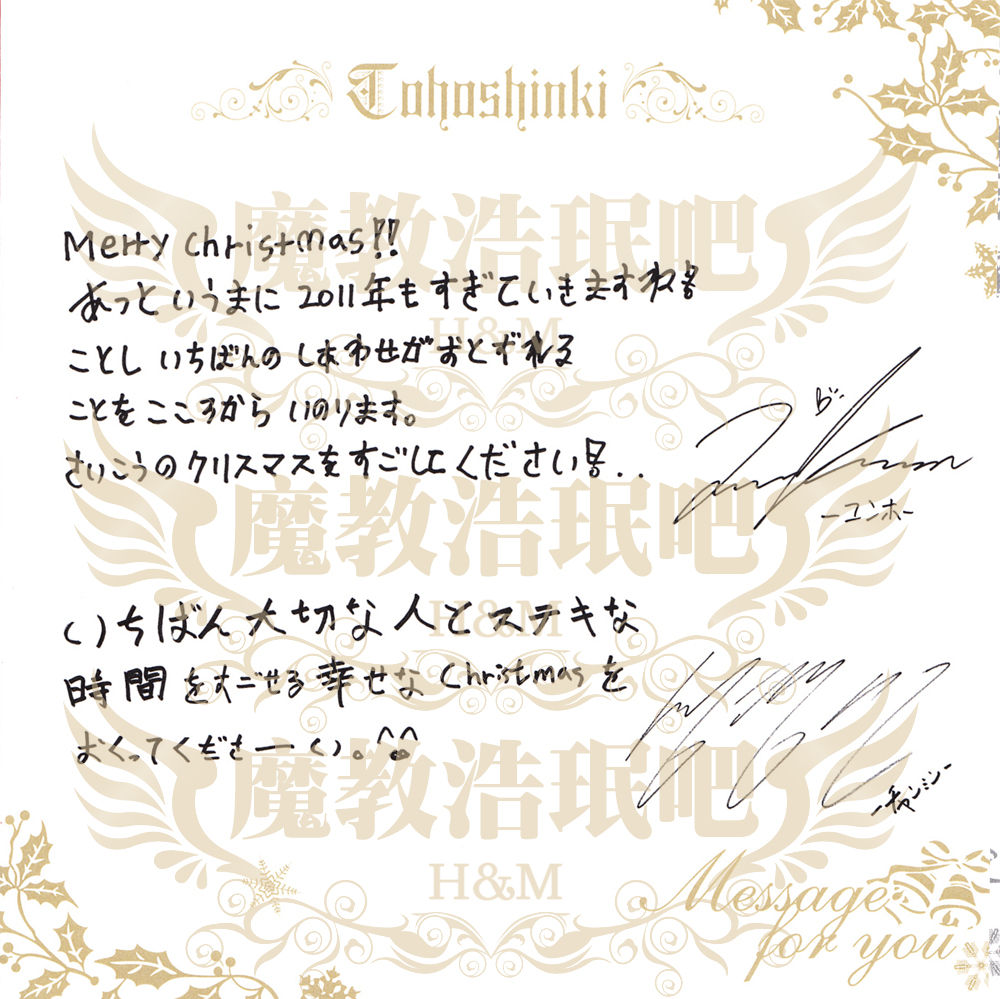 Tohoshinki
Merry Christmas!!
あっというまに 2011年もすぎていきますね
ことし いちばんの しあわせが おとずれる
ことを こころから いのります。
さいこうの クリスマスを すごしてください
ーユンホー
いちばん 大切な 人と ステキな
時間 をすごせる 幸せな Christmas を
おくってくださーい。^^
ーチャンミンー
Message
for you
魔教浩珉吧
H&M
魔教浩珉吧
H&M
魔教浩珉吧
H&M